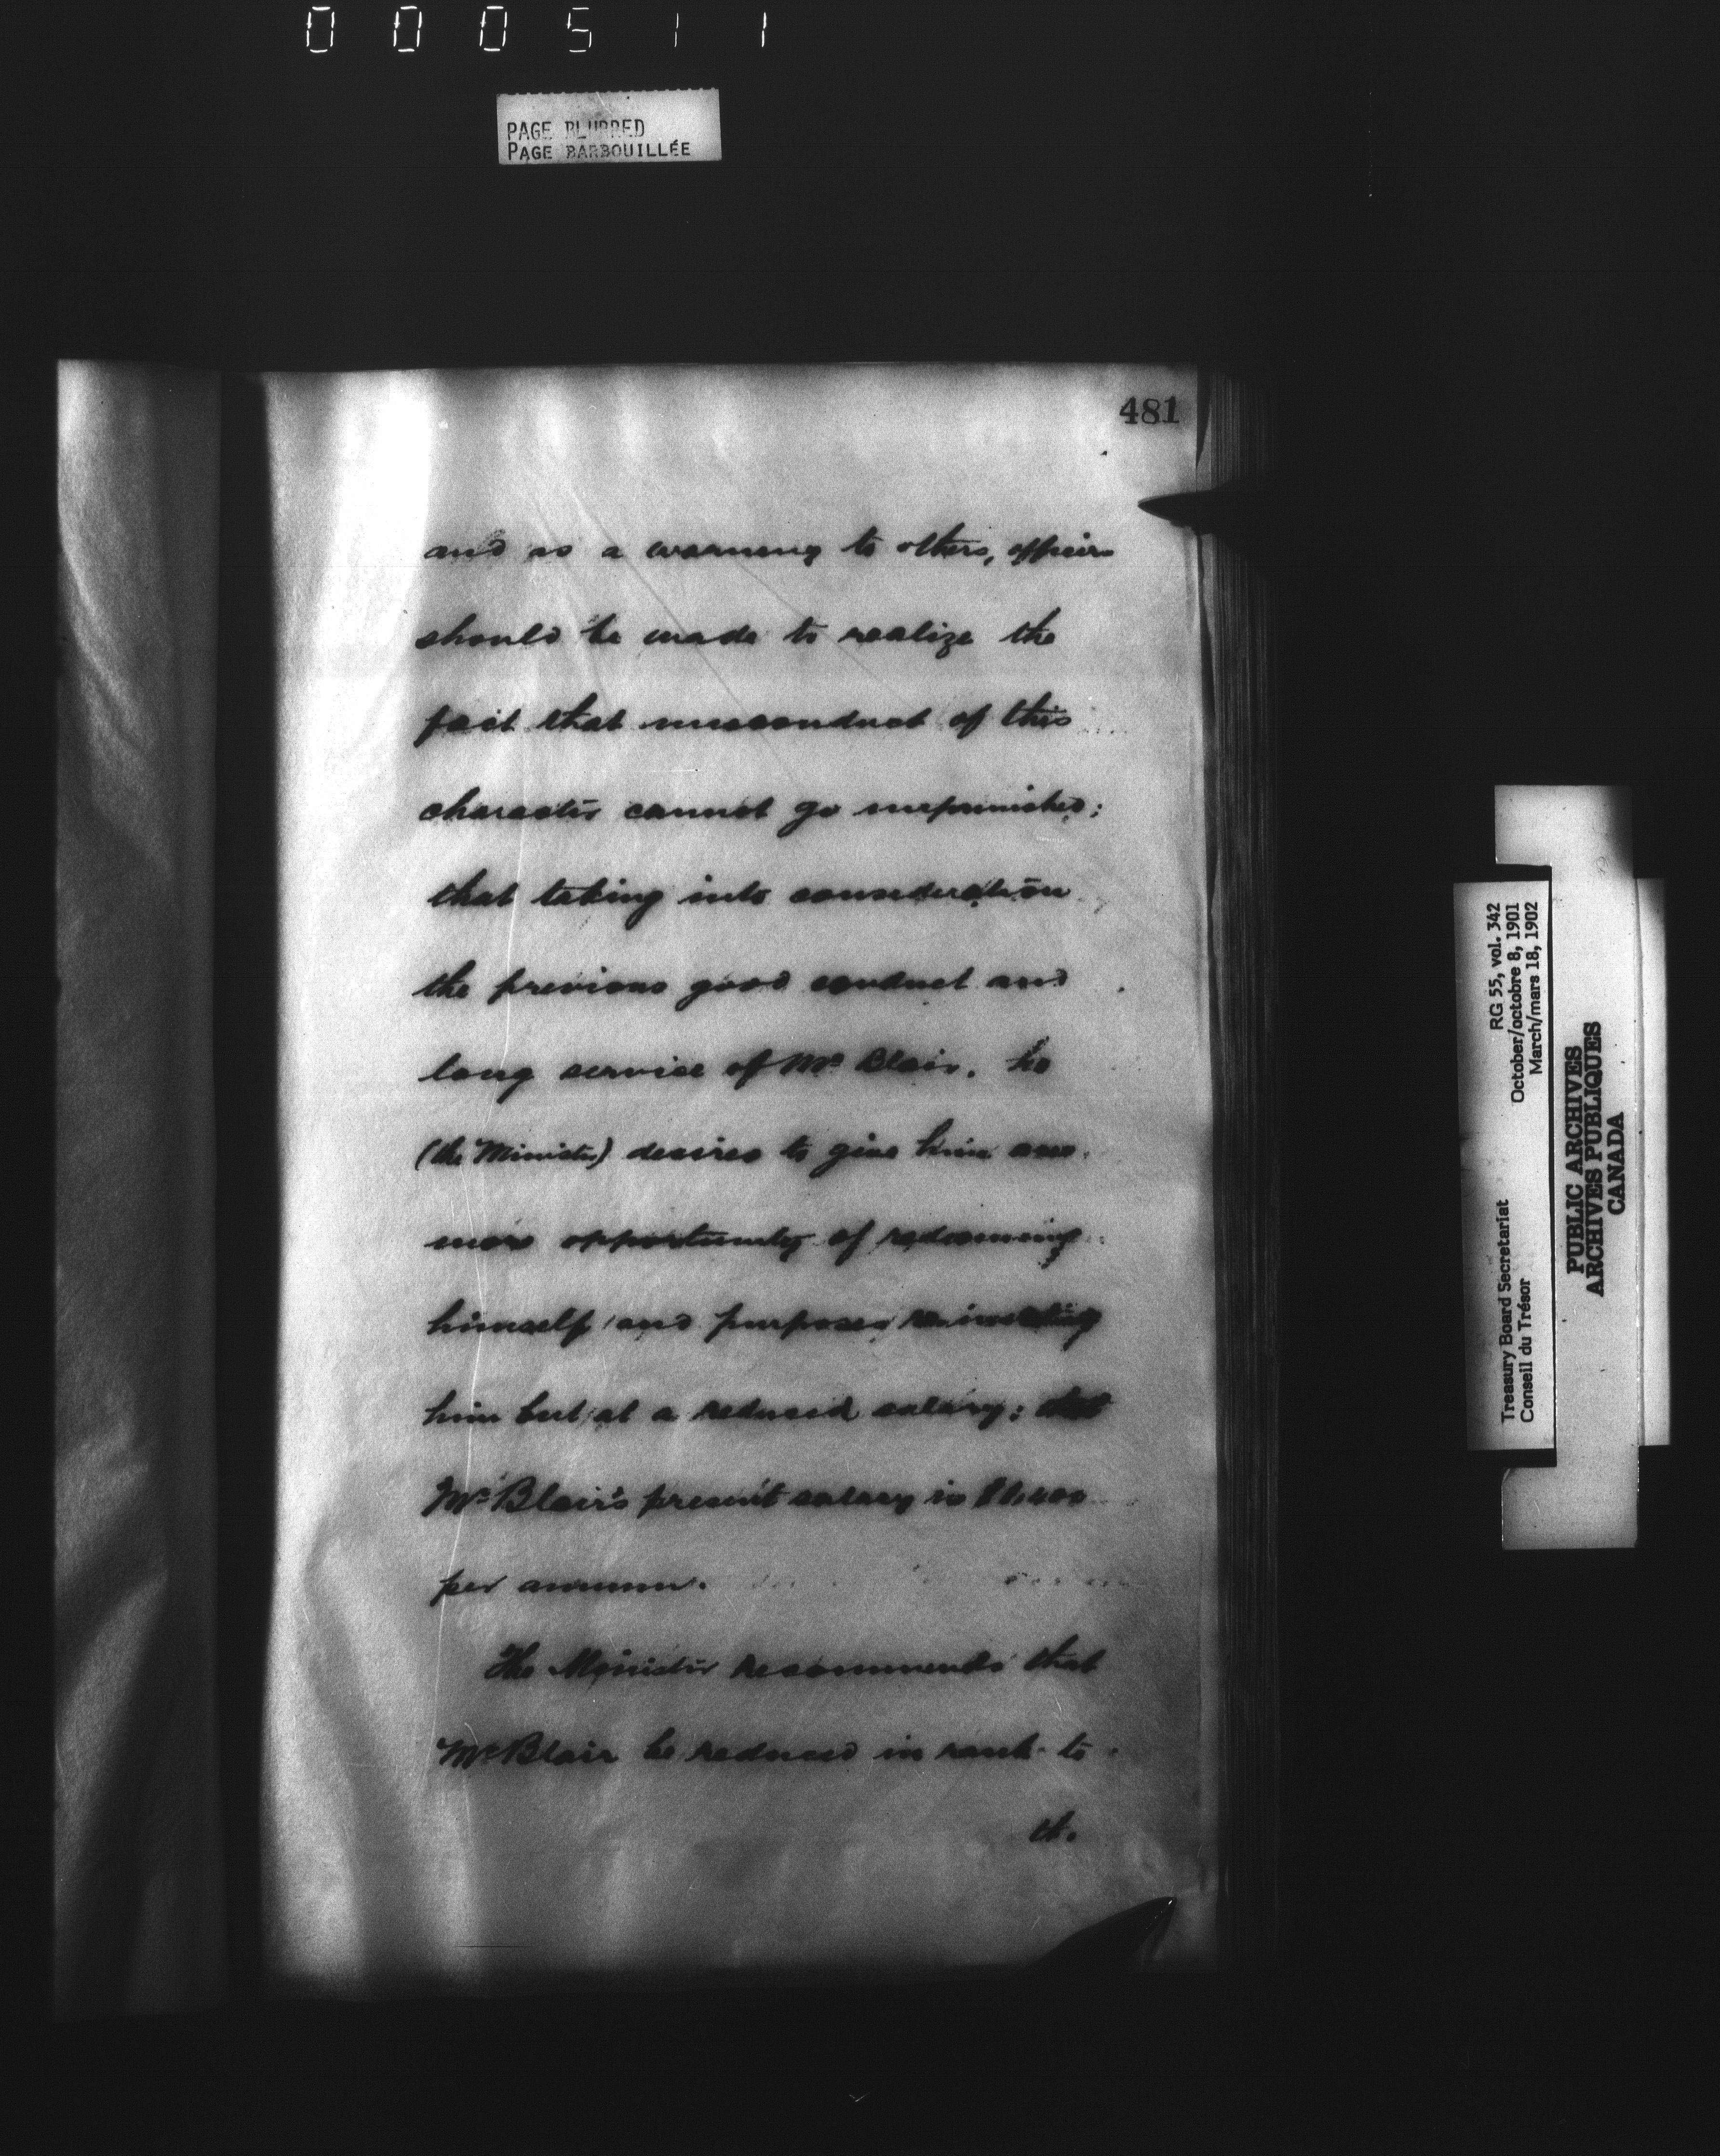 000511
PAGE BLURRED
PAGE BARBOUILLÉE
481
and as a warning to others, officers
should be made to realize the
fact that misconduct of this
character cannot go unpunished;
that taking into consideration
the previous good conduct and
long service of Mr Blair, he
(the Minister) desires to give him one
more opportunity of redeeming
himself and purposes reinstating
him but at a reduced salary; that
Mr Blair's present salary is
per annum.
The Minister recommends that
Mr Blair be reduced in rank to
Treasury Board Secretariat RG 55, vol. 342
Conseil du Trésor October/octobre 8, 1901
March/mars 18, 1902
PUBLIC ARCHIVES
ARCHIVES PUBLIQUES
CANADA